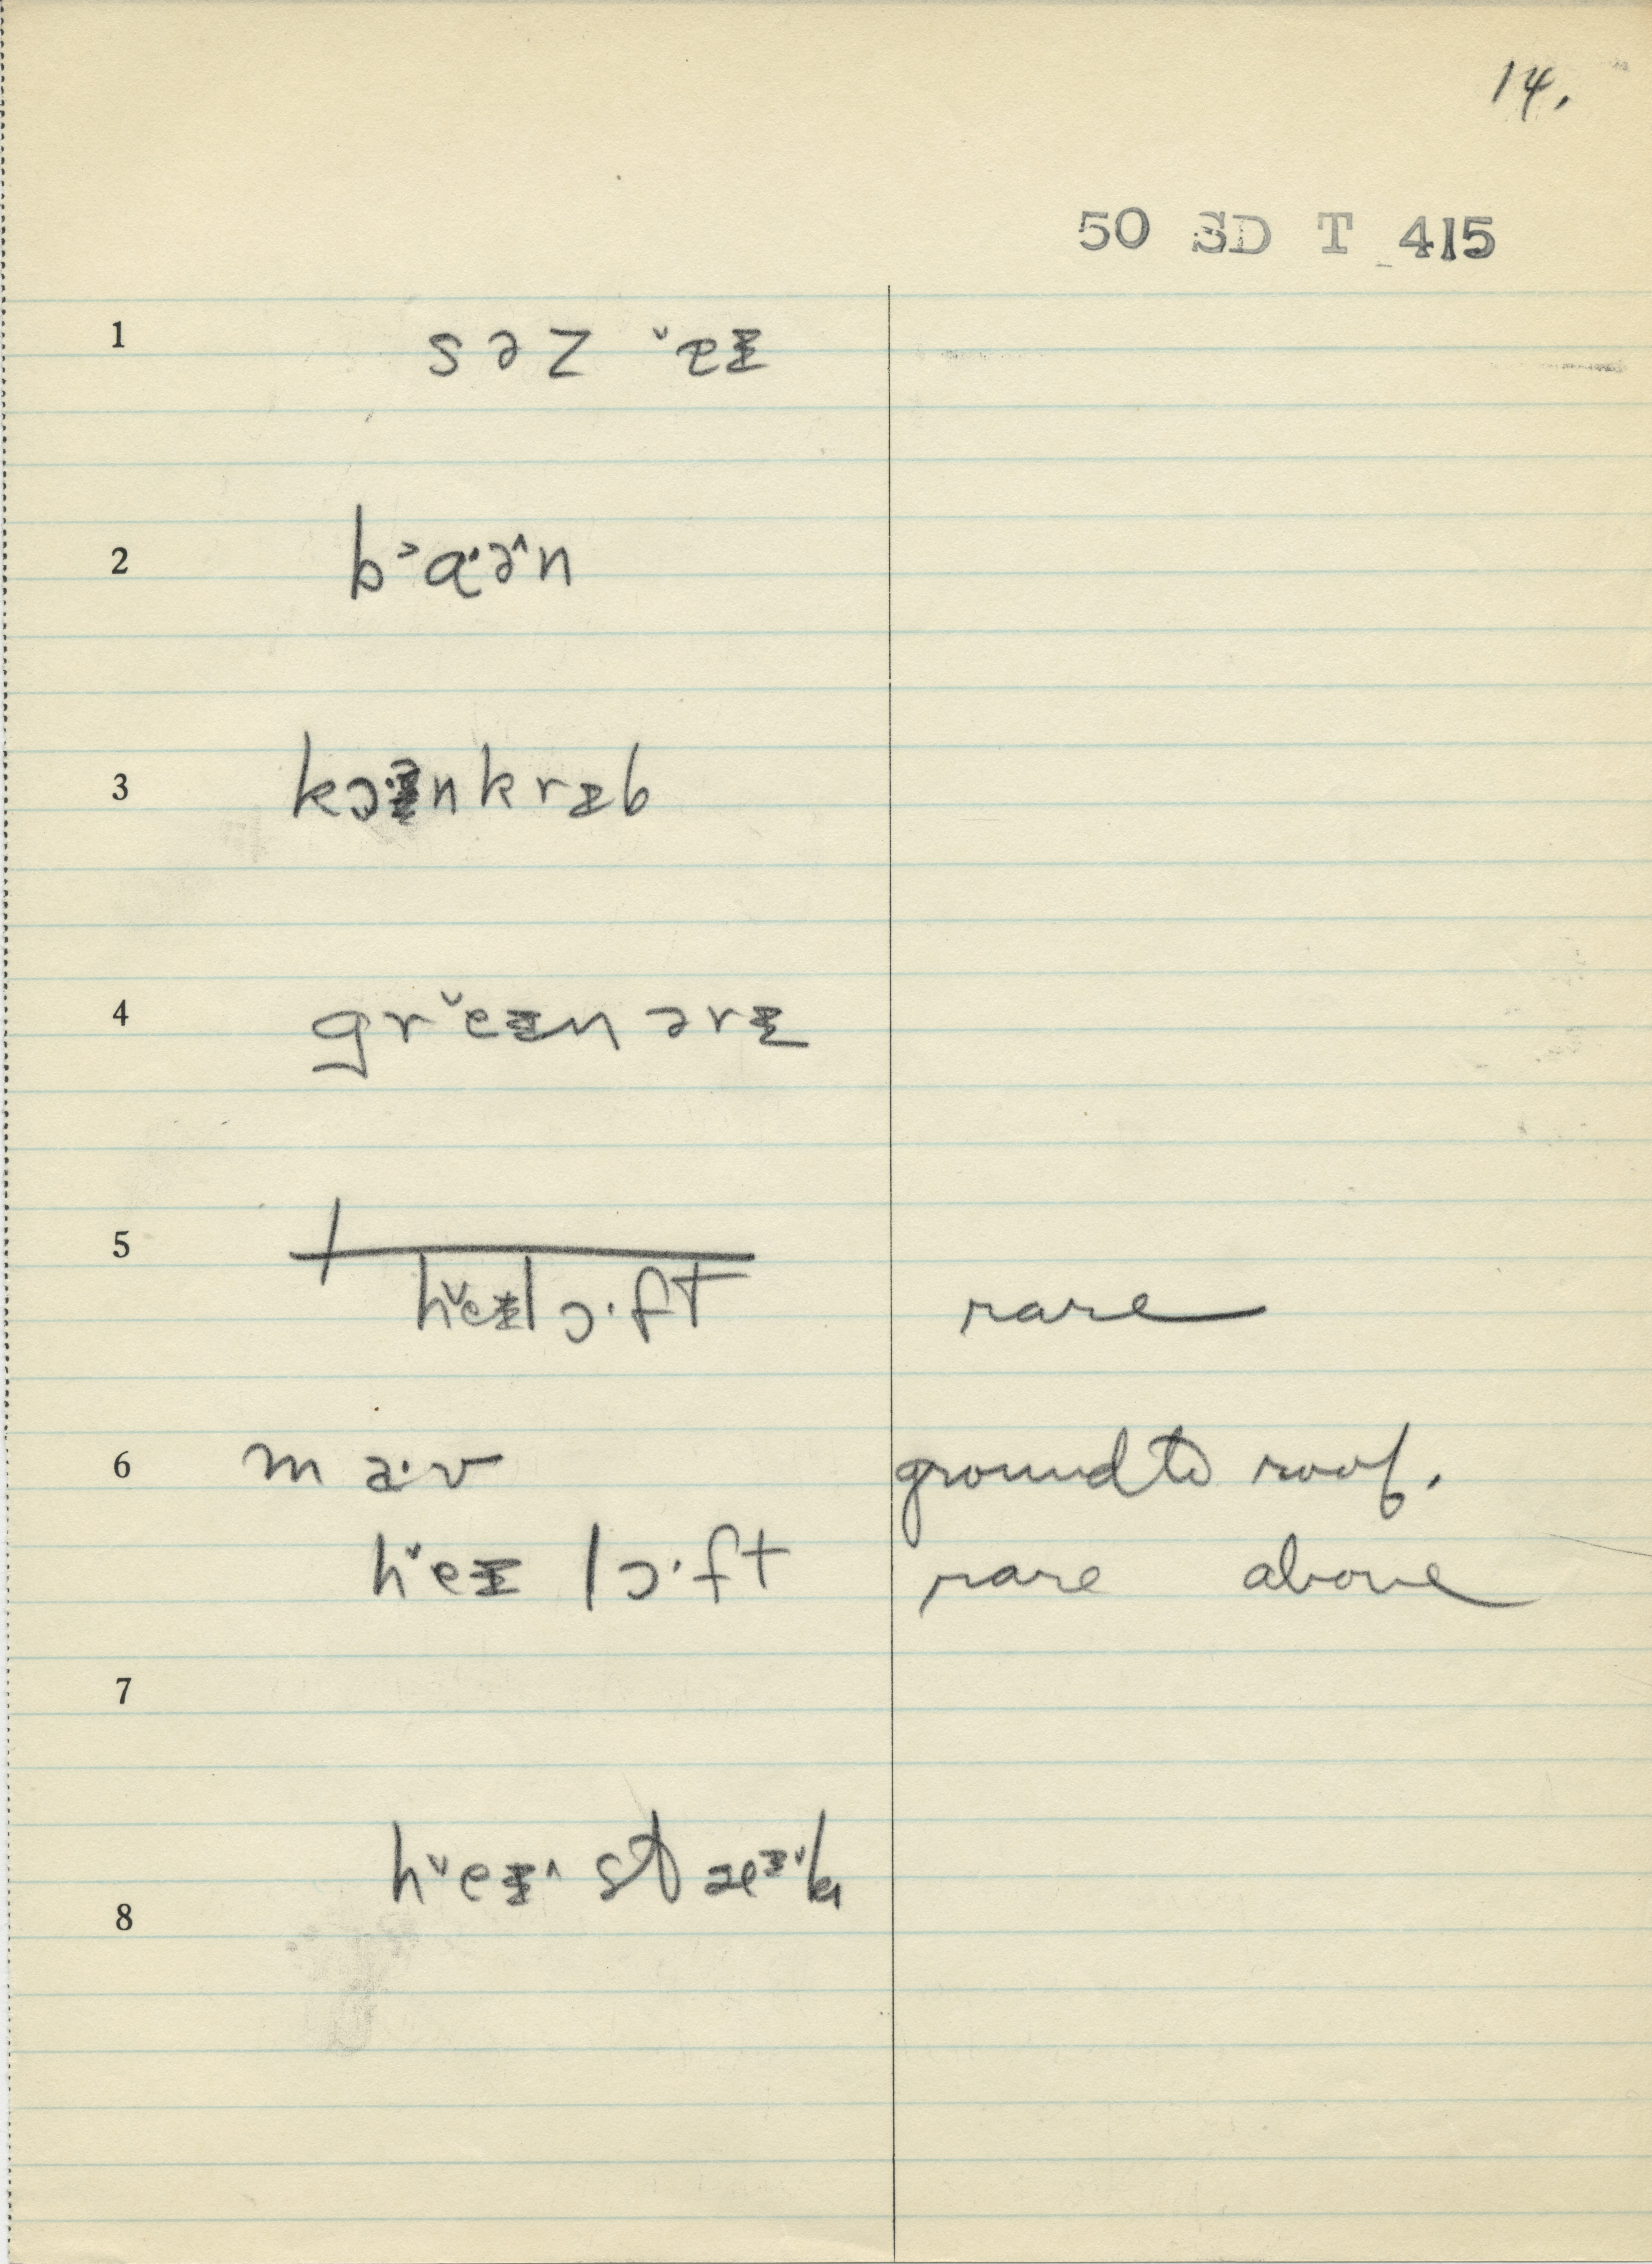 14.
50 SD T 415
1 s ə z ˇeᵻ
2 b˃ɑ·ə^n
3 kɔ·ə n k r ᵻ b
4 g r ˇe ᵻ n ə r ᵻ
5
hˇeᵻl ɔ·ft rare
6 m a·v ground to roof.
hˇeᵻ l ɔ·ft rare above
7
hˇeᵻ^ st
8